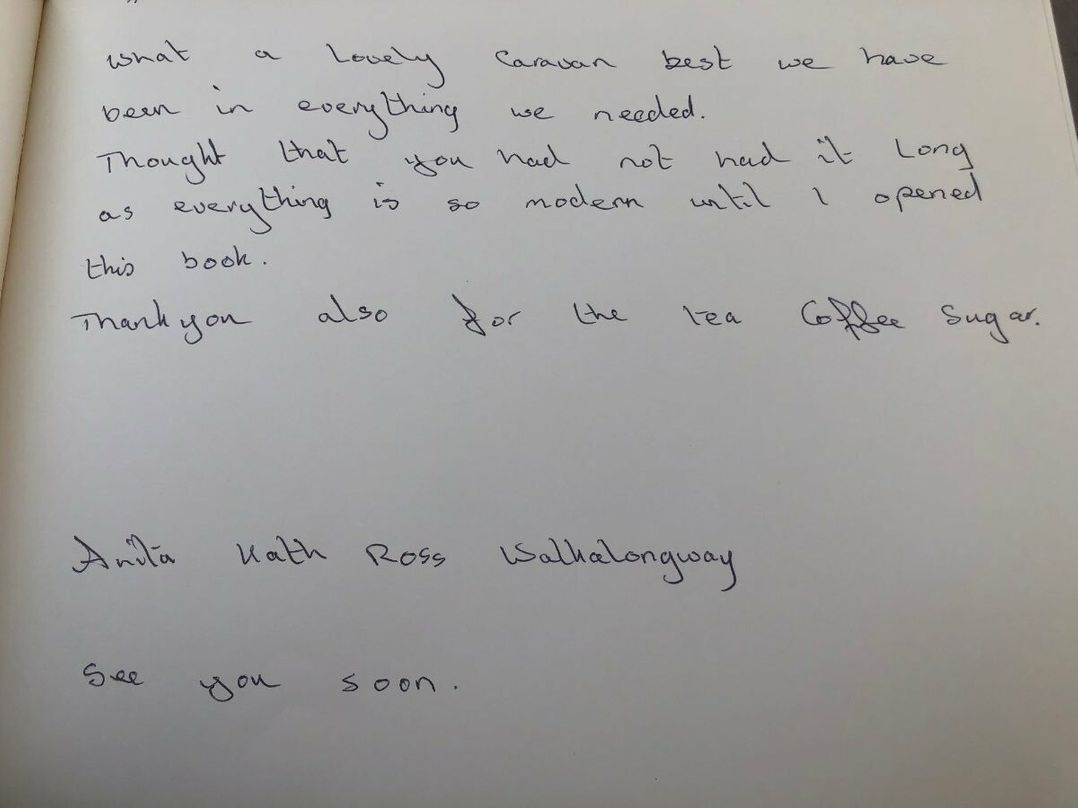 what a lovely Caravan best we have
been in everything we needed.
Thought that you had not had it Long
as everything is so modern until I opened
this book.
Thankyou also for the tea Coffee Sugar.
Anita Kath Ross Walkalongway
See you soon.